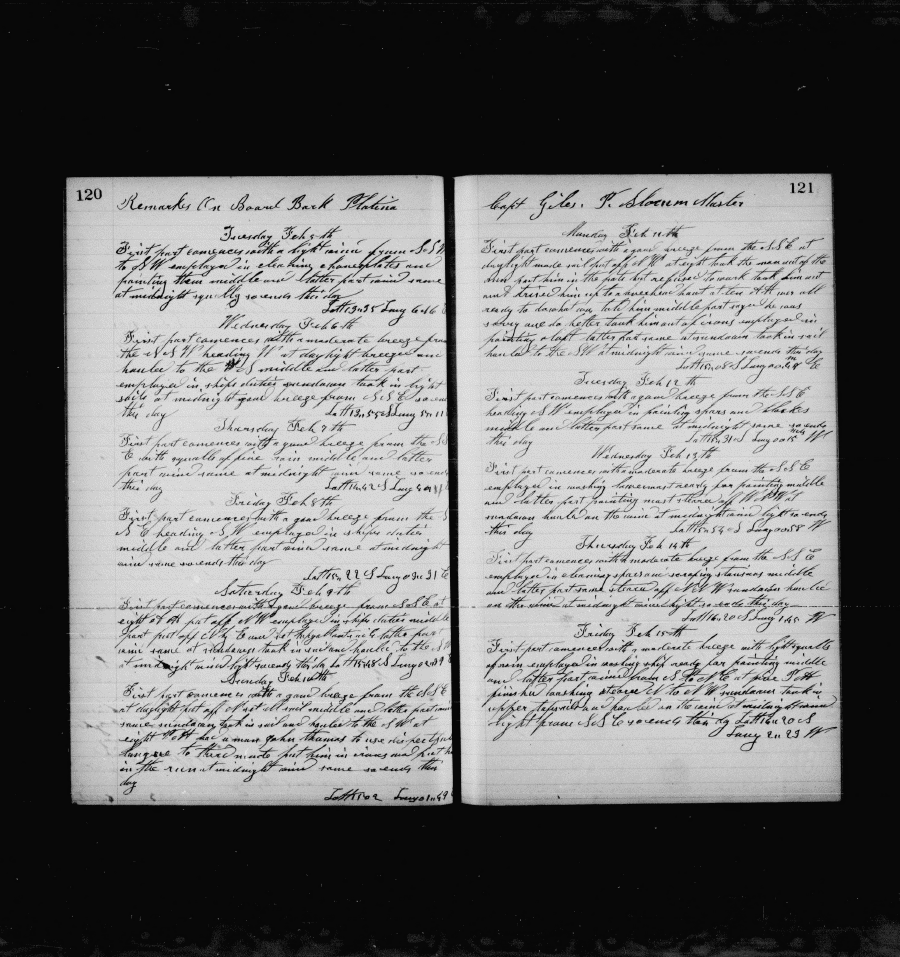 120
Remarks On Board Bark Platina
Tuesday Feb 5th
First part comences with a light wind from S S W
to S W employed in cleaning and
painting them middle and latter part wind same
at midnight squally so ends this day
Latt 13=35 Long 6=46 E
Wednesday Feb 6th
First part comences with a moderate breeze from
the S S W heading W at daylight breezed and
hauled to the S middle and latter part
employed in ships duties sundown took in light
sails at midnight good breeze from S S E so ends
this day
Latt 13=55 S Long 5=11
Thursday Feb 7th
First part comences with a good breeze from the S S
E with squalls of fine rain middle and latter
part wind same at midnight wind same so ends
this day
Latt 14=42 S Long
Friday Feb 8th
First part comences with a good breeze from the S
S E heading S W employed in ships duties
middle and latter part wind same at midnight
wind same so ends this day
Latt 15=22 S Long 03=31 E
Saturday Feb 9th
First part comences with a good breeze from S S E at
eight A M put off N W employed in ships duties middle
part put off N by E and latter part
wind same at sundown took in sail and hauled to the S W
at midnight wind light so ends this day Latt 15=48 S Long 02=09 E
Sunday Feb 10th
First part comences with a good breeze from the S S E
at daylight put off middle and latter part wind
same sundown took in sail and hauled to the S W at
eight P M had a man John Thomas to use disrespectful
language to third mate put him in irons and put him
in the run at midnight wind same so ends this
day
Long 01=49
121
Capt Giles. P. Slocum Master
Monday Feb 11th
First part comences with a good breeze from the S S E at
daylight made sail put off N W at eight took the man out of the
run put him in the but refused to work took him out
and him up to a at ten A M was all
ready to do what was told him middle part says he was
sorry and do better took him out of irons employed in
painting aloft latter part same at sundown took in sail
hauled to the S W at midnight wind same so ends this day
Latt 15=08 S Long 00=48 E
Tuesday Feb 12th
First part comences with a good breeze from the S S E
heading S W employed in painting spars and blocks
middle and latter part same at midnight same so ends
this day
Latt 15=31 S Long 00=15 W
Wednesday Feb 13th
First part comences with a moderate breeze from the S S E
employed in washing lowermast ready for painting middle
and latter part painting mast steared off at
sundown hauled on the wind at midnight wind light so ends
this day
Latt 15=54 S Long 00=58 W
Thursday Feb 14th
First part comences with a moderate breeze from the S S E
employed in cleaning spars and scraping stanions middle
and latter part same steared off N N W sundown hauled
on the wind at midnight wind light so ends this day
Latt 16=20 S Long 1=45 W
Friday Feb 15th
First part comences with a moderate breeze with light squalls
of rain employed in washing ship ready for painting middle
and latter part wind from S S E at five P M
finished washing steared N W sundown took in
upper topsails and hauled on the wind at midnight wind
light from S S E so ends this day Latt 16=20 S
Long 2=23 W